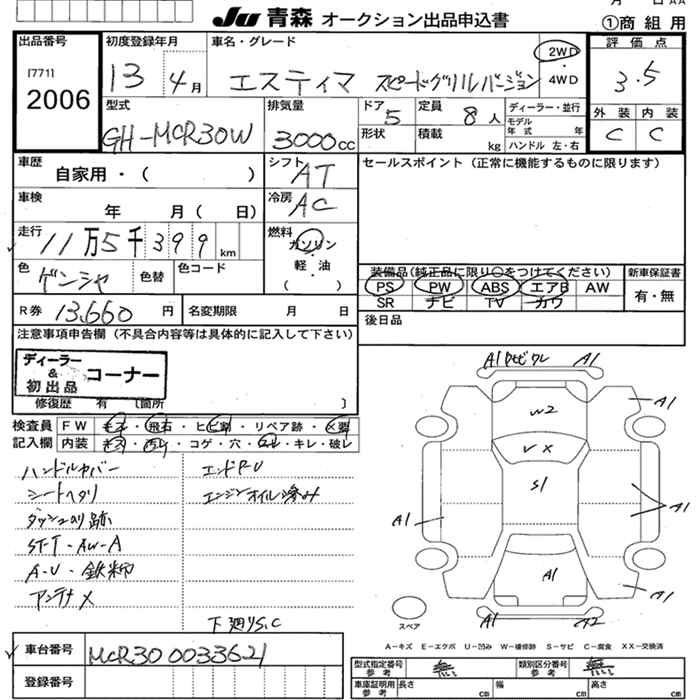 月 日 AA
JU 青森 オークション出品申込書
①商 組 用
出品番号
[771]
2006
初度登録年月
13 4月
車名・グレード
エスティマ スピードグリルバージョン
2WD
4WD
評 価 点
3.5
外 装 内 装
C C
型式
GH-MCR30W
排気量
3000cc
ドア
5
定員
8人
形状
積載
kg
ディーラー・並行
モデル
年 式 年
ハンドル 左・右
車歴
自家用・( )
シフト
AT
セールスポイント (正常に機能するものに限ります)
車検
年 月( 日)
冷房
AC
走行
11万5千399km
燃料
ガソリン
・
軽・油
( )
色
ゲンシャ
色替
色コード
装備品(純正品に限り○をつけてください)
新車保証書
PS PW ABS エアB AW
SR ナビ TV カワ
有・無
R券
13,660円
名変期限 月 日
後日品
注意事項申告欄 (不具合内容等は具体的に記入して下さい)
ディーラー
&
初出品
コーナー
修復歴 有 [箇所 ]
検査員
記入欄
FW キズ・飛石・ヒビ割・リペア跡・X要
内装 ・コゲ・穴・・キレ・破レ
ハンドルカバー
エンドPU
シートヘタリ
エンジンオイル滲み
ダッシュのり跡
ST-T-AW-A
A-U-鉄粉
アンテナX
下廻りS.C
A1 A1
W2
A1
VX
S1
A1
A1
A1
A1
A1 A2
スペア
A-キズ E-エクボ U-凹み W-補修跡 S-サビ C-腐食 XX-交換済
車台番号
MCR30 0033621
登録番号
型式指定番号
参 考
無
類別区分番号
参 考
無
車庫証明用
参 考
長さ cm
幅 cm
高さ cm